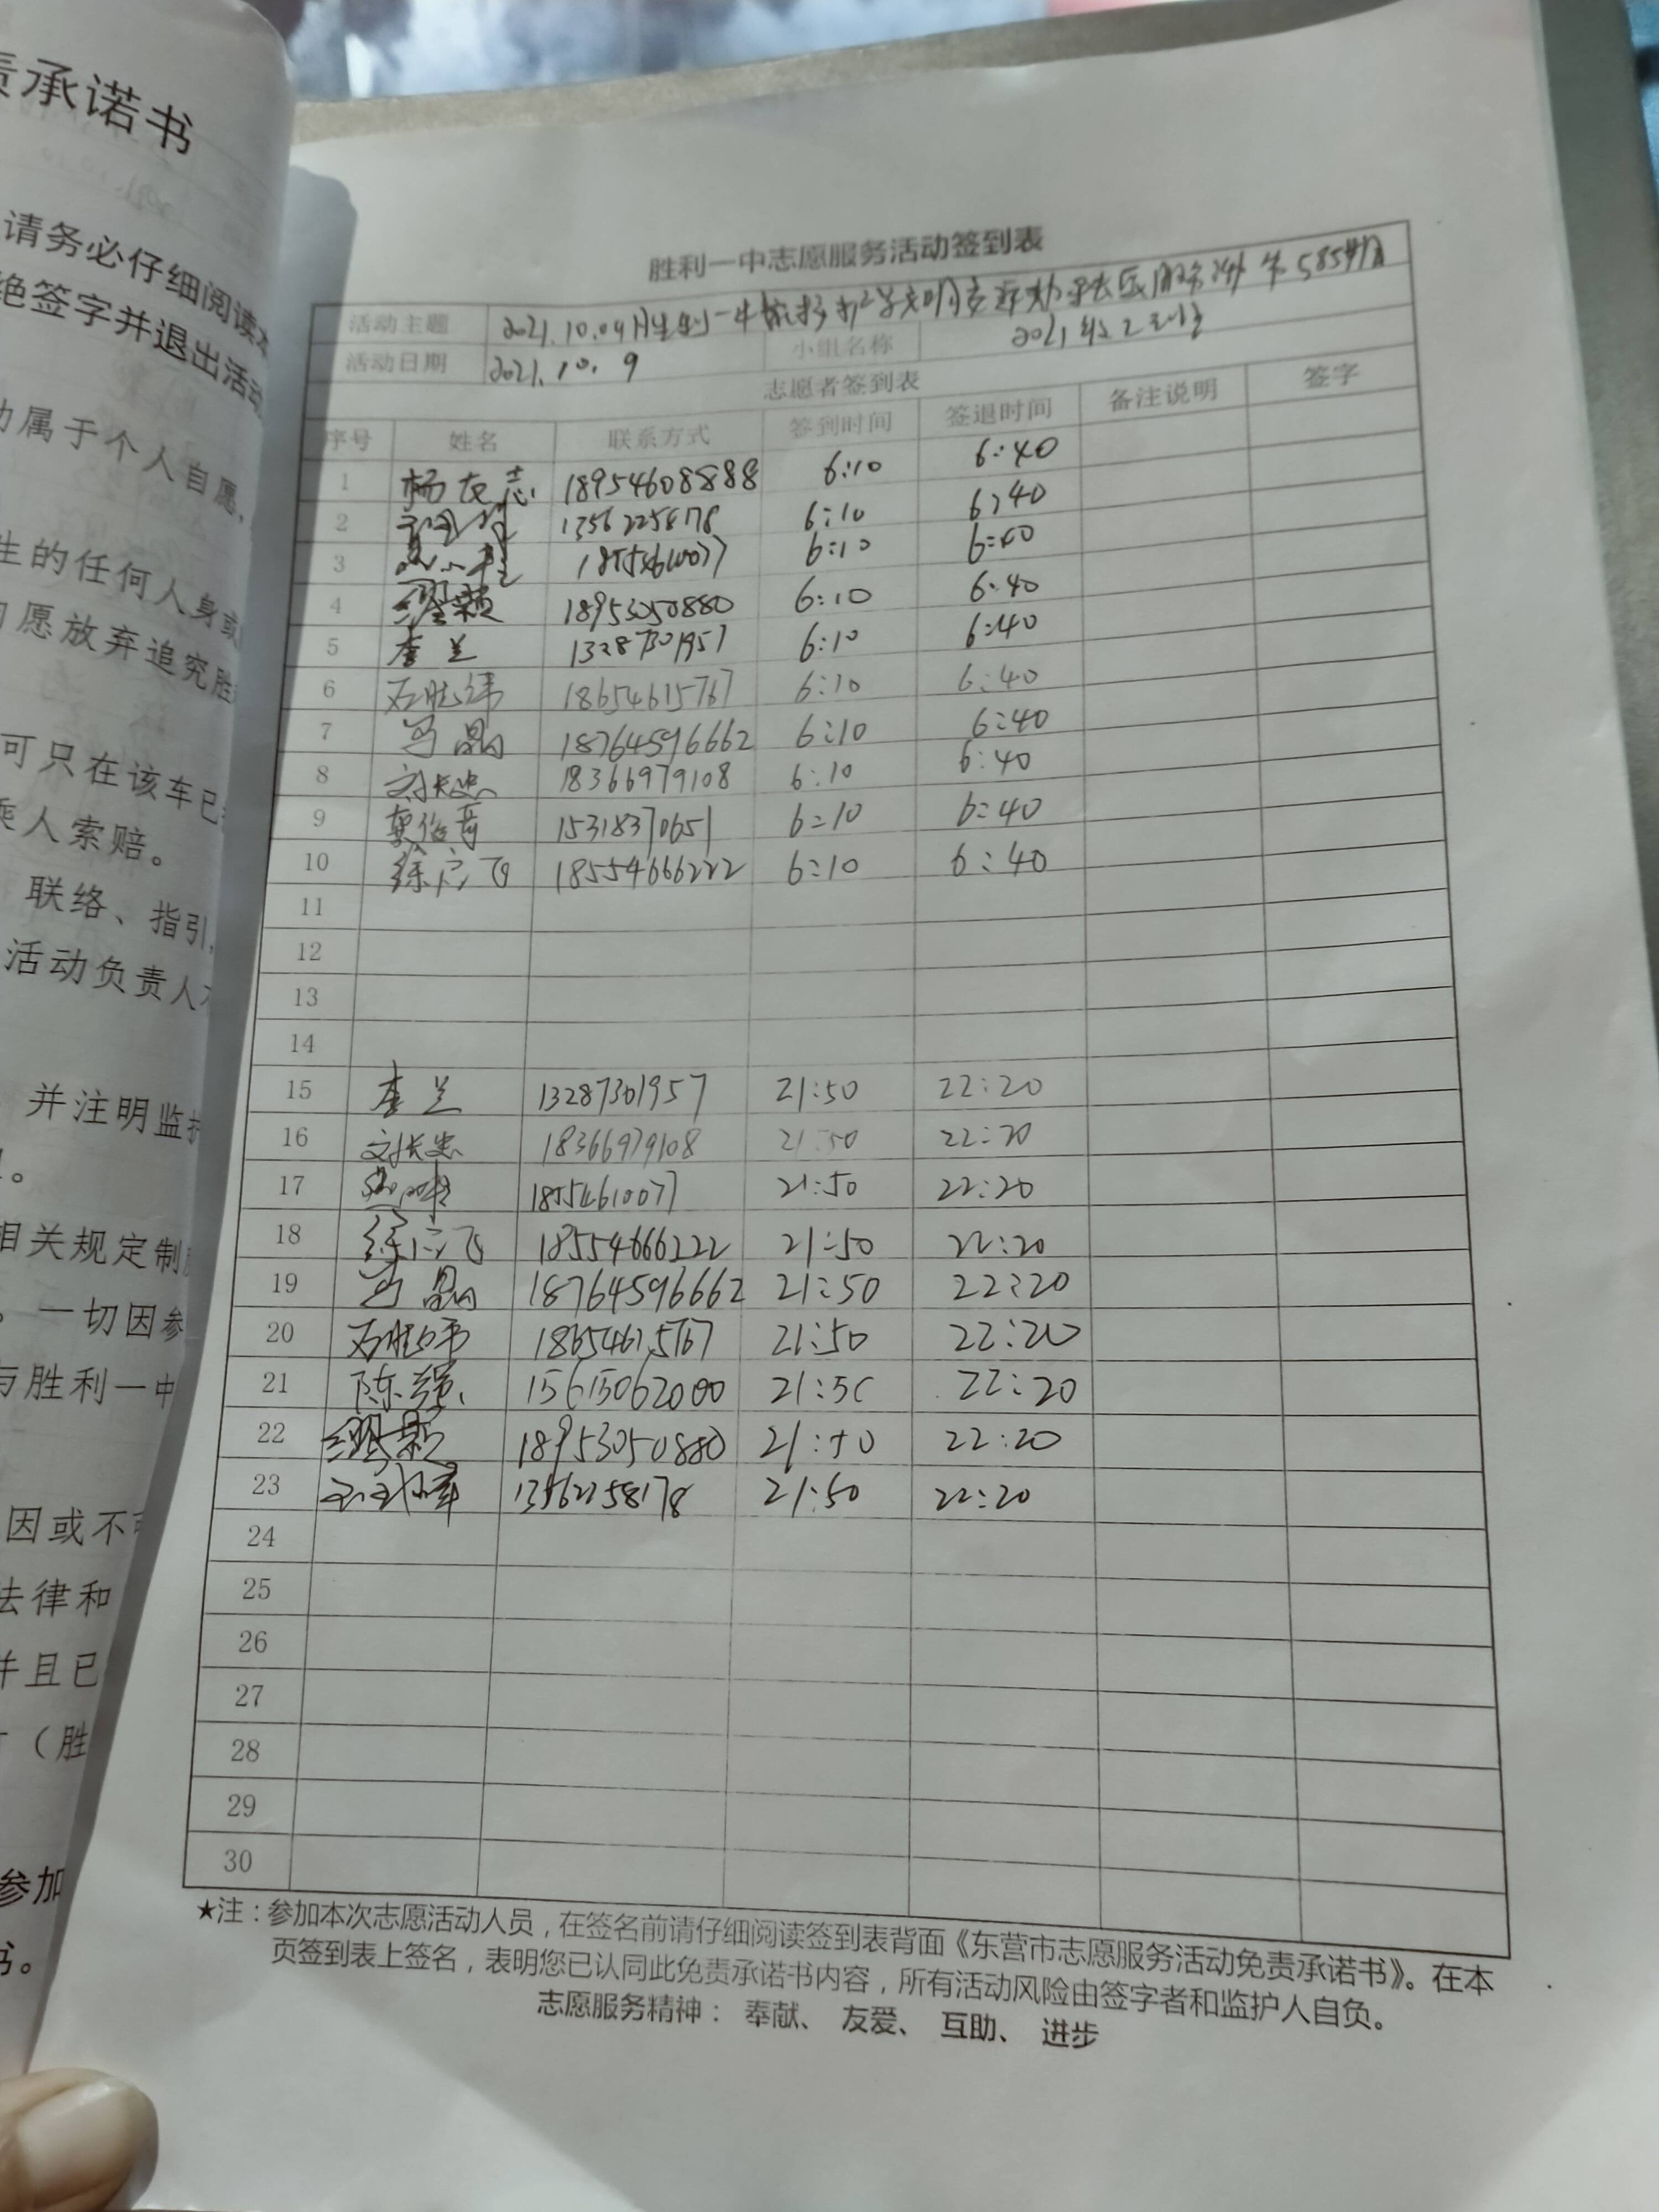 责承诺书
请务必仔细阅读本
绝签字并退出活动
动属于个人自愿，
生的任何人身或
自愿放弃追究胜
可只在该车已
乘人索赔。
联络、指引，
活动负责人不
并注明监护
相关规定制
。一切因参
与胜利一中
因或不可
法律和
并且已
（胜
参加
书。
胜利一中志愿服务活动签到表
活动主题 2021.10.09胜利一中
活动日期 2021.10.9 小组名称 2021级2
志愿者签到表
序号 姓名 联系方式 签到时间 签退时间 备注说明 签字
1 杨友志 18954608888 6:10 6:40
2 13562258178 6:10 6:40
3 18554610077 6:10 6:40
4 18953050880 6:10 6:40
5 李兰 13287301957 6:10 6:40
6 石胜伟 18654615767 6:10 6:40
7 马晶 18764596662 6:10 6:40
8 刘长忠 18366979108 6:10 6:40
9 15318370651 6:10 6:40
10 徐广飞 18554666222 6:10 6:40
11
12
13
14
15 李兰 13287301957 21:50 22:20
16 刘长忠 18366979108 21:50 22:20
17 18554610077 21:50 22:20
18 徐广飞 18554666222 21:50 22:20
19 马晶 18764596662 21:50 22:20
20 石胜伟 18654615767 21:50 22:20
21 陈强 15615062000 21:50 22:20
22 18953050880 21:50 22:20
23 13562258178 21:50 22:20
24
25
26
27
28
29
30
★注：参加本次志愿活动人员，在签名前请仔细阅读签到表背面《东营市志愿服务活动免责承诺书》。在本
页签到表上签名，表明您已认同此免责承诺书内容，所有活动风险由签字者和监护人自负。
志愿服务精神： 奉献、 友爱、 互助、 进步